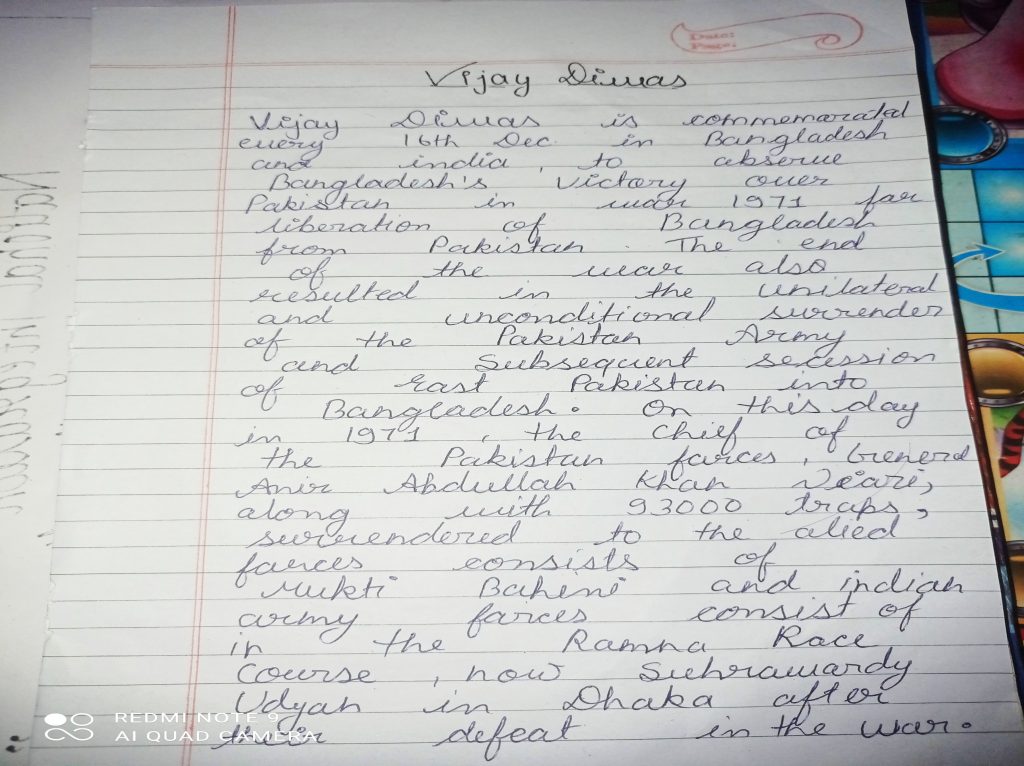 Date:
Page:
Vijay Diwas
Vijay Diwas is commemorated
every 16th Dec. in Bangladesh
and india, to abserve
Bangladesh's Victory over
Pakistan in war 1971 far
liberation of Bangladesh
from Pakistan. The end
of the war also
resulted in the unilateral
and unconditional surrender
of the Pakistan Army
and Subsequent secession
of East Pakistan into
Bangladesh. On this day
in 1971, the chief of
the Pakistan farces, General
Anir Abdullah Khan
along with 93000 traps,
surrendered to the alied
farces consists of
Mukti Baheni and indian
army farces consist of
in the Ramna Race
Course, now Suhrawardy
Udyan in Dhaka after
their defeat in the war.
REDMI NOTE 9
AI QUAD CAMERA